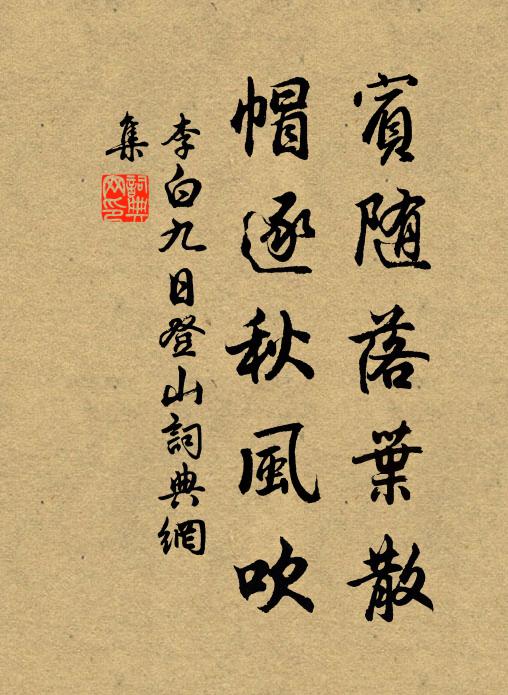 賓随落葉散
帽逐秋風吹
李白九日登山詞典網
集
詞典
网印